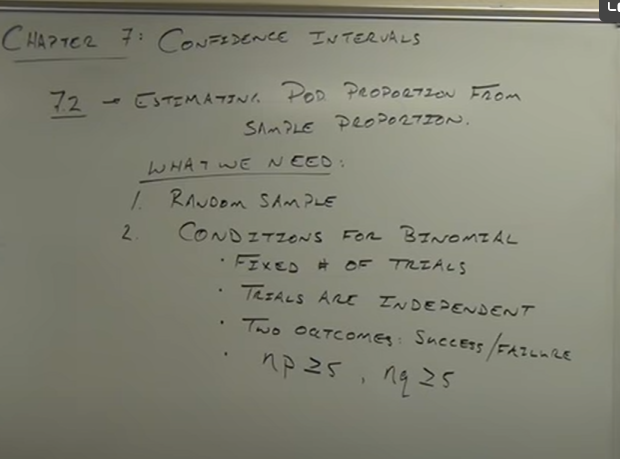 CHAPTER 7: CONFIDENCE INTERVALS
7.2 → ESTIMATING POP. PROPORTION FROM
SAMPLE PROPORTION.
WHAT WE NEED:
1. RANDOM SAMPLE
2. CONDITIONS FOR BINOMIAL
· FIXED # OF TRIALS
· TRIALS ARE INDEPENDENT
· TWO OUTCOMES: SUCCESS/FAILURE
· np ≥5, nq ≥5